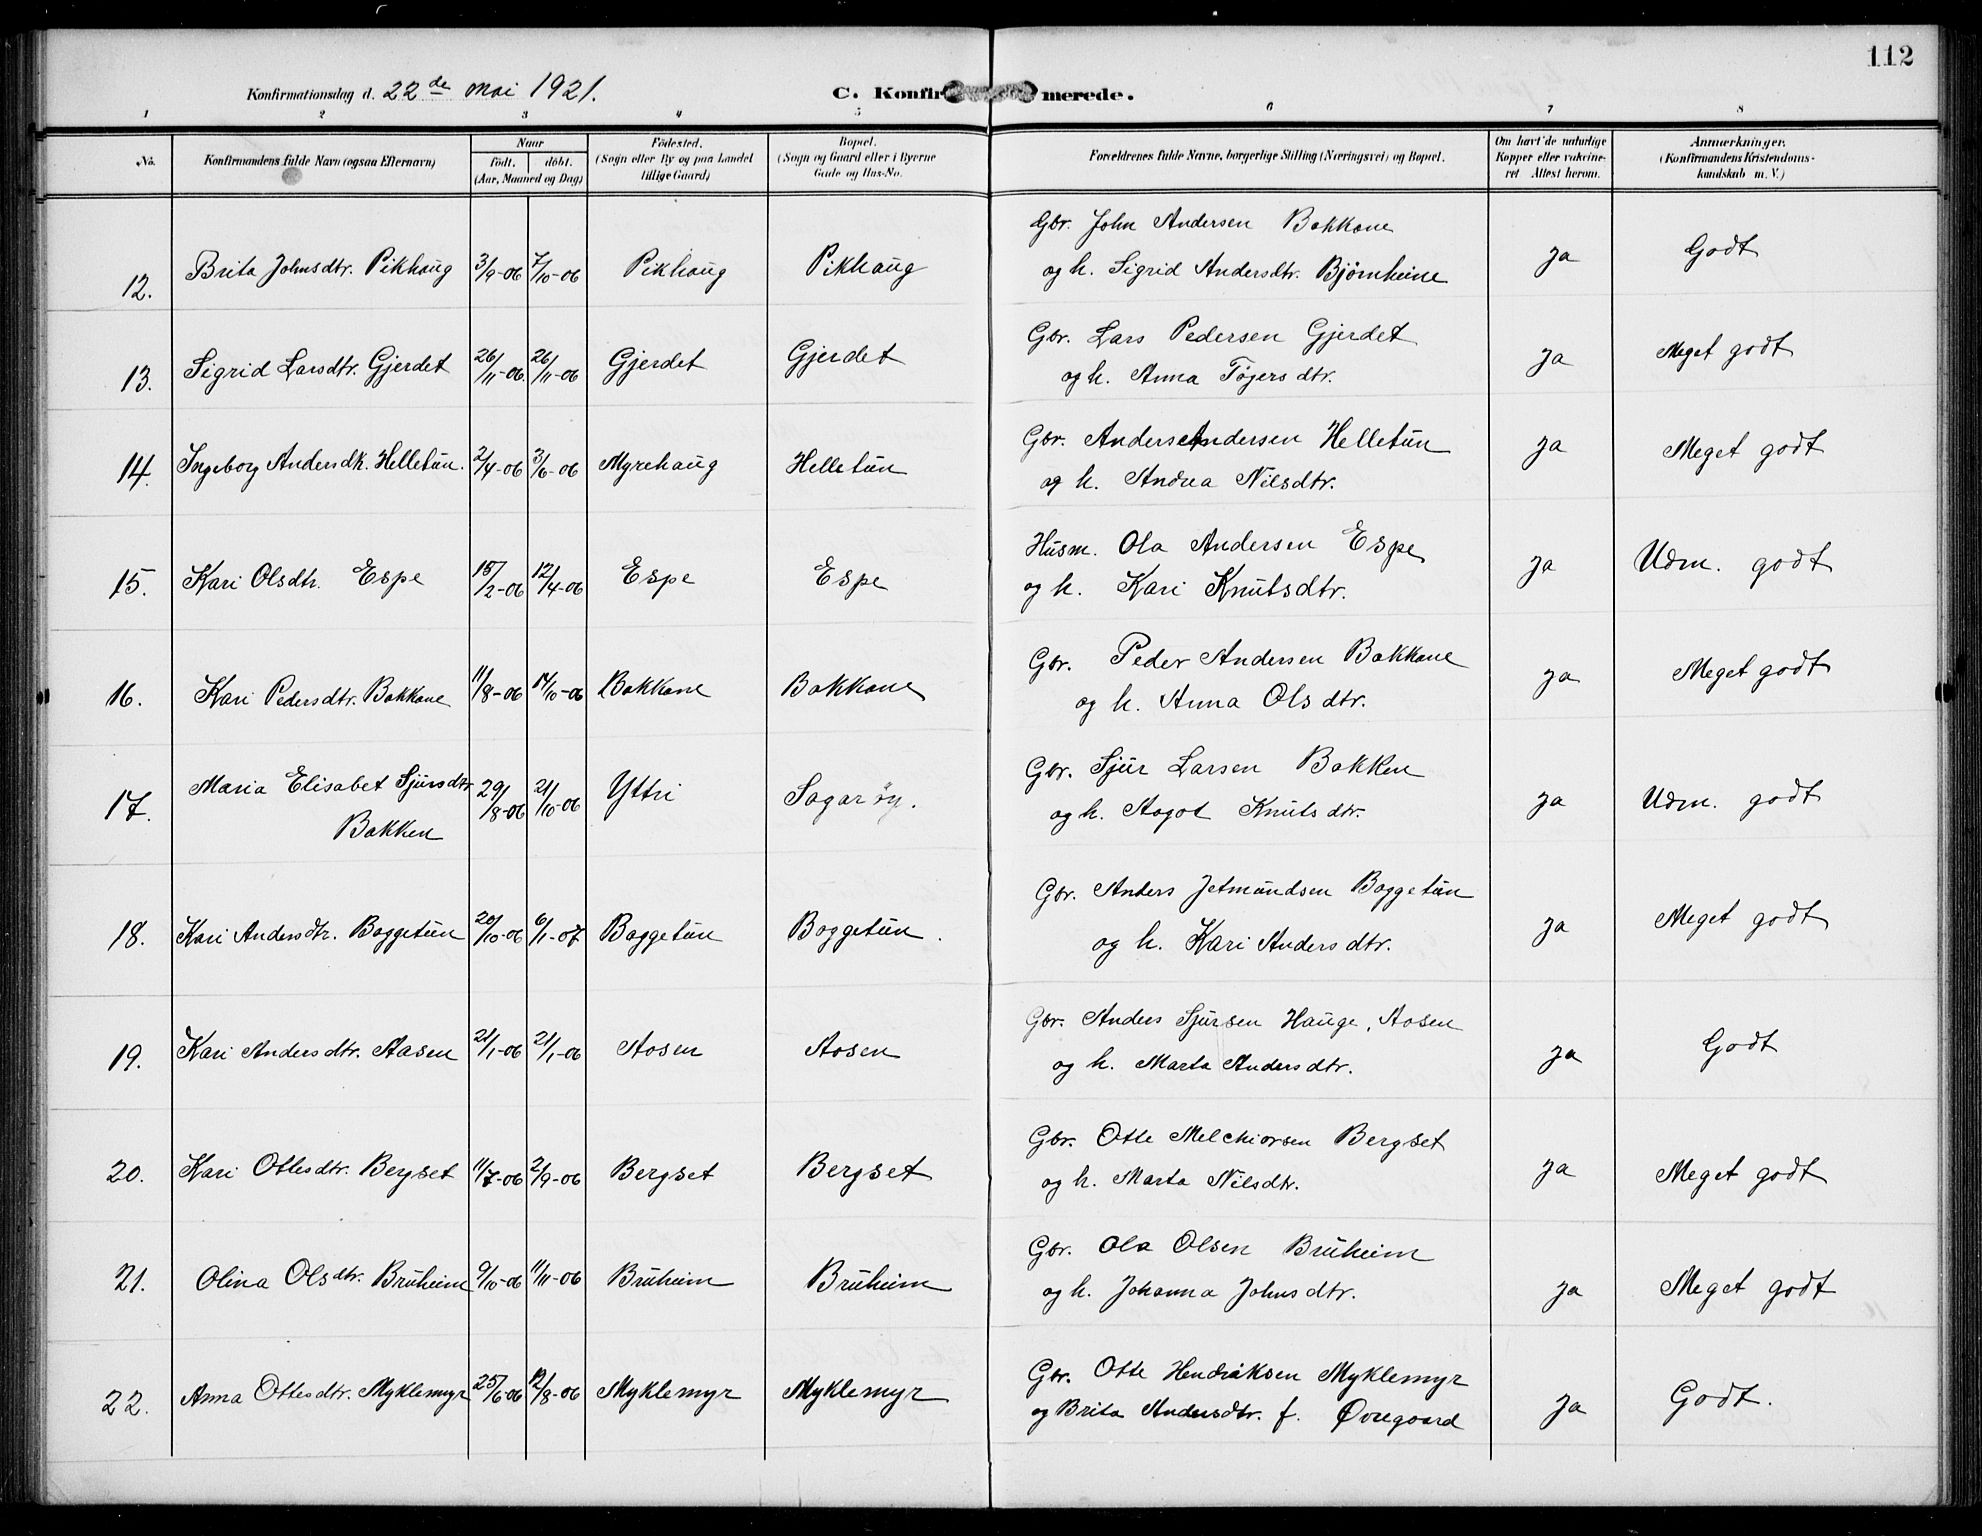 112
Konfirmationsdag d. 22de mai 1921. C. Konfir merede.
1 2 3 4 5 6 7 8
No. Konfirmandens fulde Navn (ogsaa Efternavn) Naar født. døbt. (Aar, Maaned og Dag) Fødested. (Sogn eller By og paa Landet tillige Gaard) Bopæl. (Sogn og Gaard eller i Byerne Gade og Hus-No. Forældrenes fulde Navne, borgerlige Stilling (Næringsvei) og Bopæl. Om havt de naturlige Kopper eller vakcineret. Attest herom. Anmerkninger. (Konfirmandens Kristendomskundskab m. V.)
12. Brita Johnsdtr. Pikhaug 3/9-06 7/10-06 Pikhaug Pikhaug Gbr. John Andersen Bakkane
og h. Sigrid Andersdtr. Bjørnheine ja Godt
13. Sigrid Larsdtr. Gjerdet 26/11-06 26/11-06 Gjerdet Gjerdet Gbr. Lars Pedersen Gjerdet
og h. Anna Tøgersdtr. ja Meget godt
14. Ingeborg Andersdtr. Helletun. 2/4-06 3/6-06 Myrehaug Helletun Gbr. Anders Andersen Helletun
og h. Andrea Nilsdtr. ja Meget godt
15. Kari Olsdtr. Espe 15/2-06 12/4-06 Espe Espe Husm. Ola Andersen Espe
og h. Kari Knutsdtr. ja Udm. godt
16. Kari Pedersdtr. Bakkane 11/8-06 14/10-06 Bakkane Bakkane Gbr. Peder Andersen Bakkane
og h. Anna Olsdtr. ja Meget godt
17. Maria Elisabet Sjursdtr.
Bakken 29/8-06 21/10-06 Yttri Sagarøy. Gbr. Sjur Larsen Bakken
og h. Aagot Knutsdtr. ja Udm. godt
18. Kari Andersdtr. Baggetun 20/10-06 6/1-07 Baggetun Baggetun. Gbr. Anders Jetmundsen Baggetun
og h. Kari Andersdtr. ja Meget godt
19. Kari Andersdtr. Aasen 21/1-06 21/1-06 Aasen Aasen Gbr. Anders Sjursen Hauge, Aasen
og h. Marta Andersdtr. ja Godt
20. Kari Ottesdtr. Bergset 11/7-06 2/9-06 Bergset Bergset Gbr. Otte Melchiorsen Bergset
og h. Marta Nilsdtr. ja Meget godt
21. Olina Olsdtr. Bruheim 9/10-06 11/11-06 Bruheim Bruheim Gbr. Ola Olsen Bruheim
og h. Johanna Johnsdtr. ja Meget godt
22. Anna Ottesdtr. Myklemyr 25/6-06 12/8-06 Myklemyr Myklemyr Gbr. Otte Hendriksen Myklemyr
og Brita Andersdtr. f. Øvregaard ja Godt.